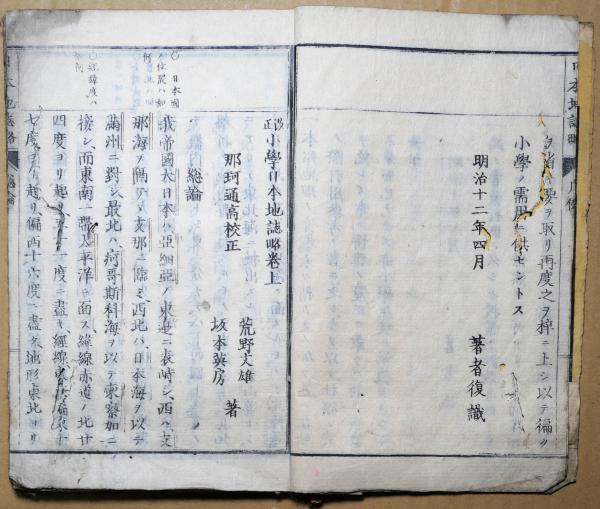 ヲ取リ再度之ヲ梓ニ上シ以テ徧ク
小學ノ需用ニ供セントス
明治十二年四月
著者復識
改正小學日本地誌略卷上
荒野文雄
坂本英房 著
那珂通高校正
總論
○日本國ノ位置ハ如何
○經緯度ハ如何
我帝國大日本ハ亞細亞ノ東邊ニ表峙シ西ハ支
那海ヲ隔テヽ支那ニ臨ミ西北ハ日本海ヲ以テ
滿州ニ對シ最北ハ阿哥斯科海ヲ以テ東察加ニ
接シ而東南一帶太平洋ニ面ス緯線赤道ノ北廿
四度ヨリ起リ
一度ニ盡キ經線東
偏東十
七度ヨリ起リ偏西十六度ニ盡ク地形東北ヨリ